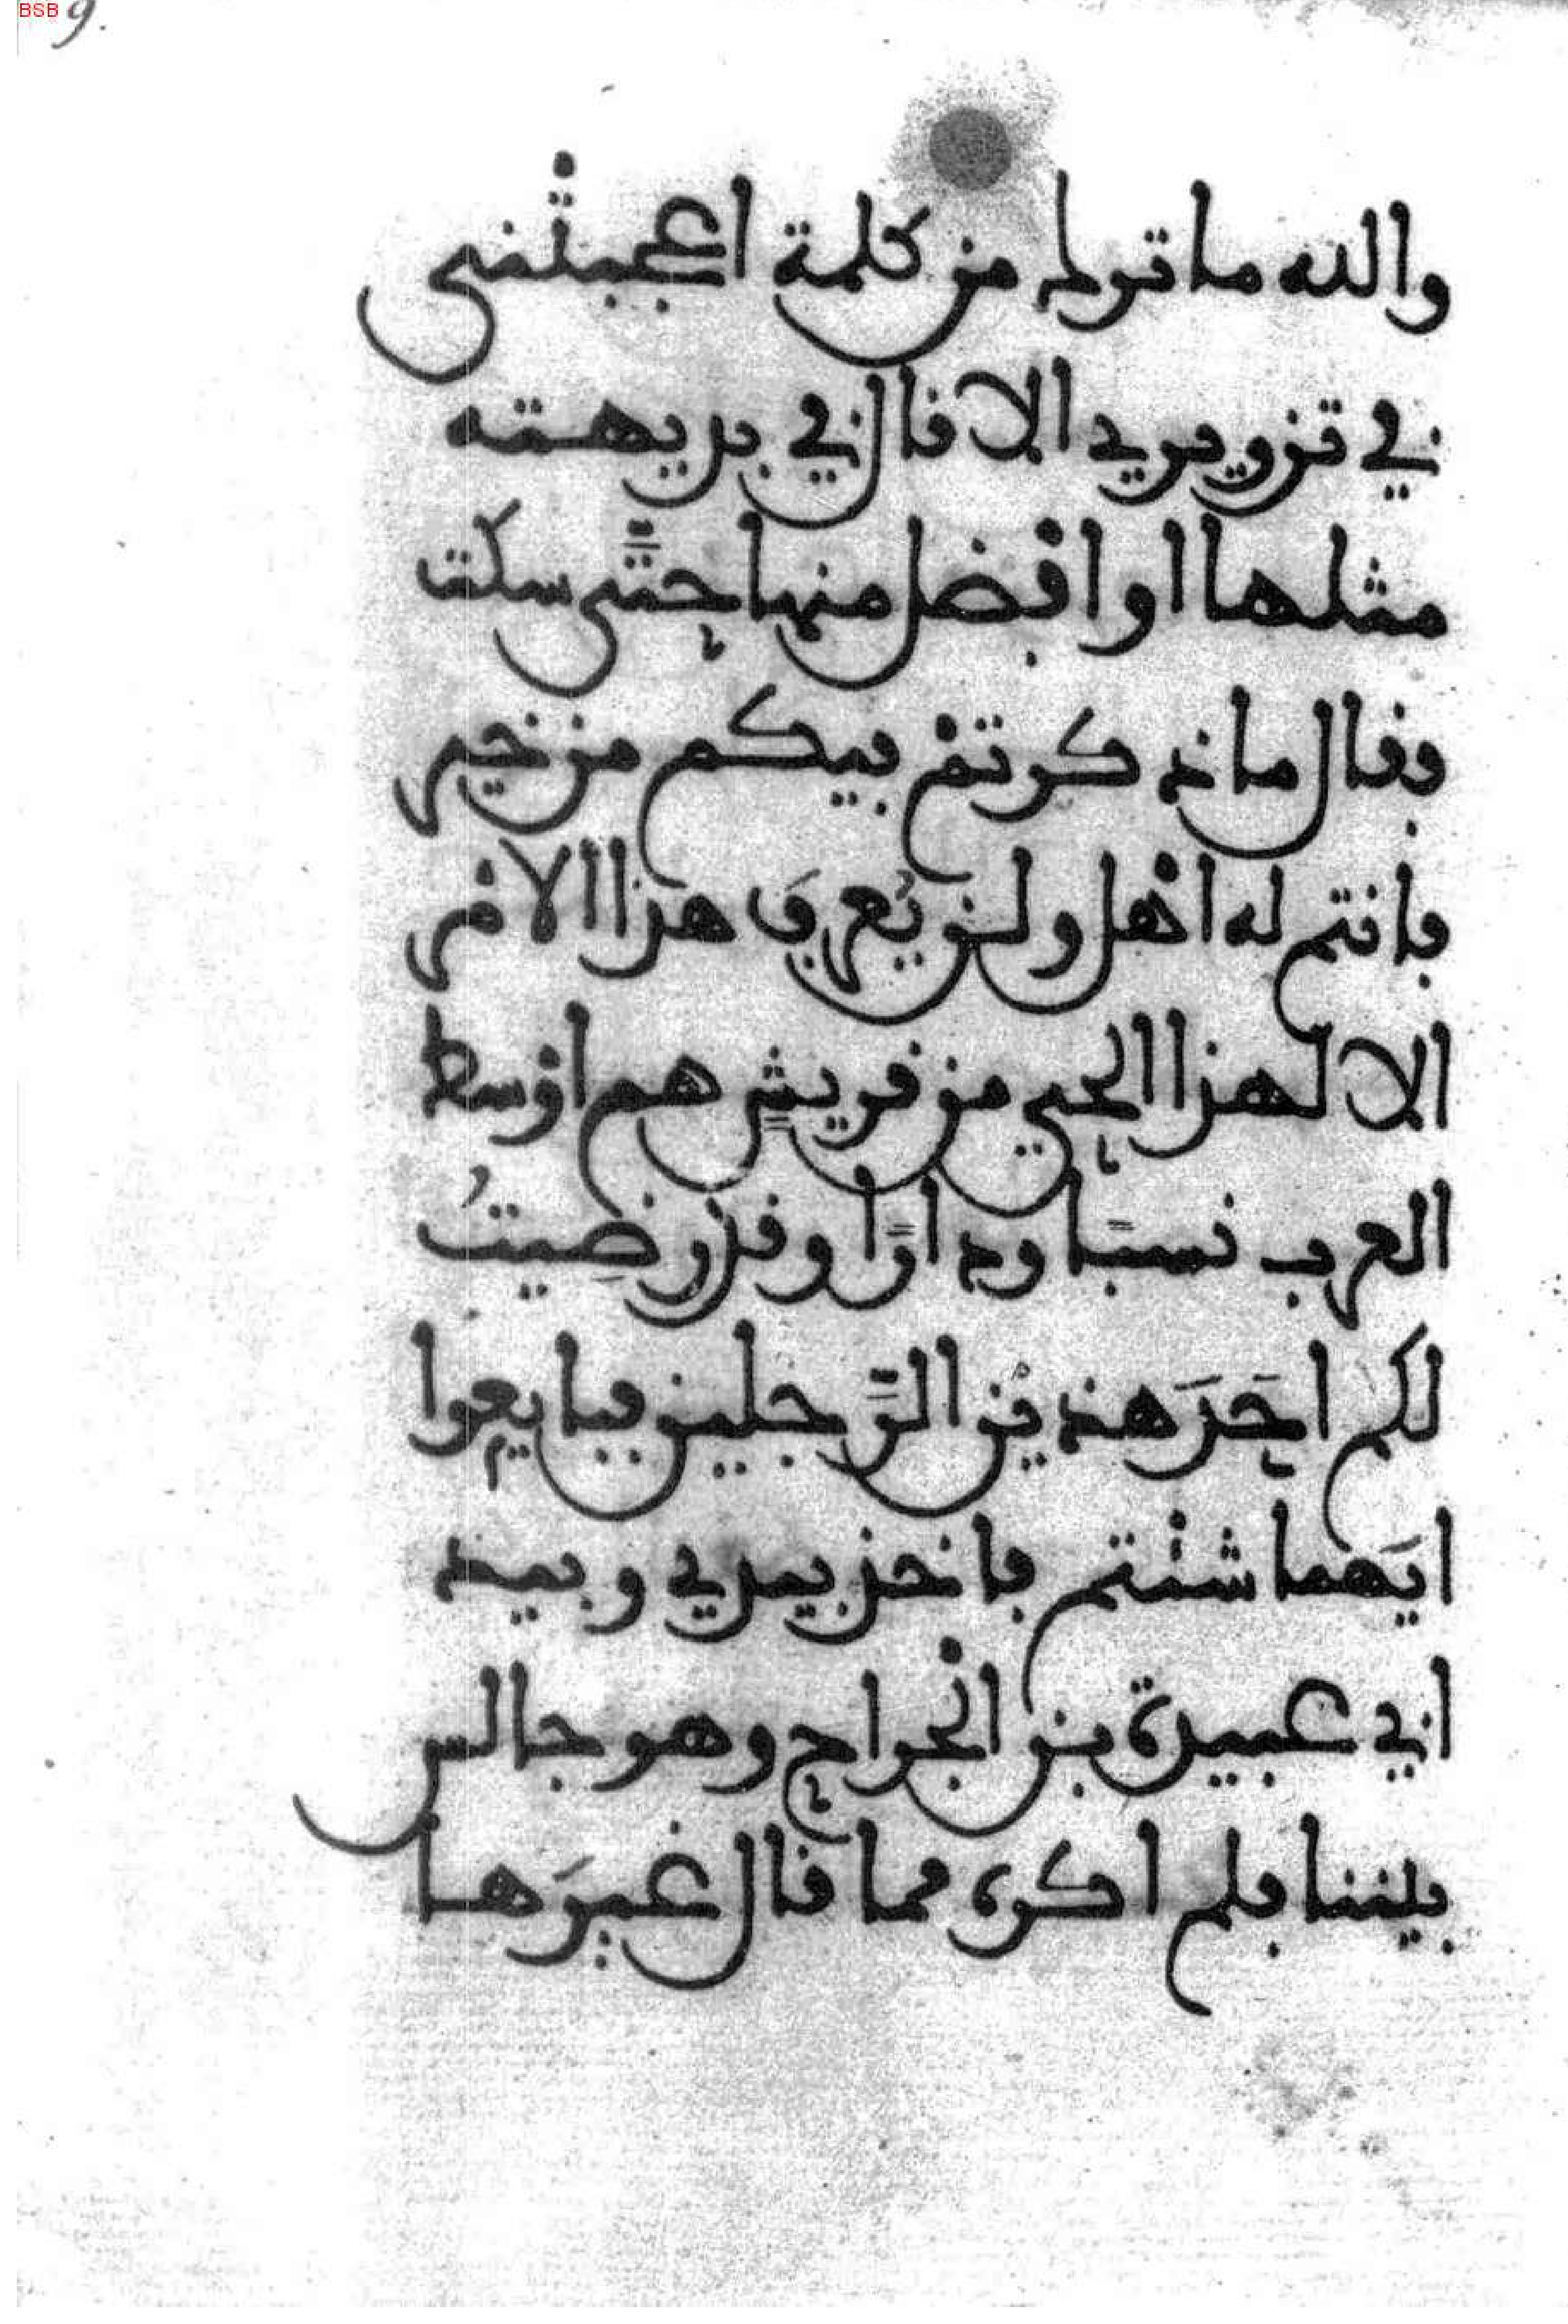 BSB 9.
والله ما ترك من كلمة اعجبتْني
في تزويري الا قال في بديهته
مثلها او افْضل منها حتًّى سكت
فقال ما ذكرتمْ فيكم من خير
فانتم له اهْل ولن يُعرفَ هذا الامْر
الا لهذا الحي من قريشٍ هم اوْسط
العرب نسبًا ودارًا وقد رَضِيتُ
لكم احَدَ هذيْن الرَّجلين فبايعوا
ايَهما شئْتم فاخذ بيدي وبيد
ابي عبيدة بن الْجراح وهو جالس
بيننا فلم اكره مما قال غيرَها